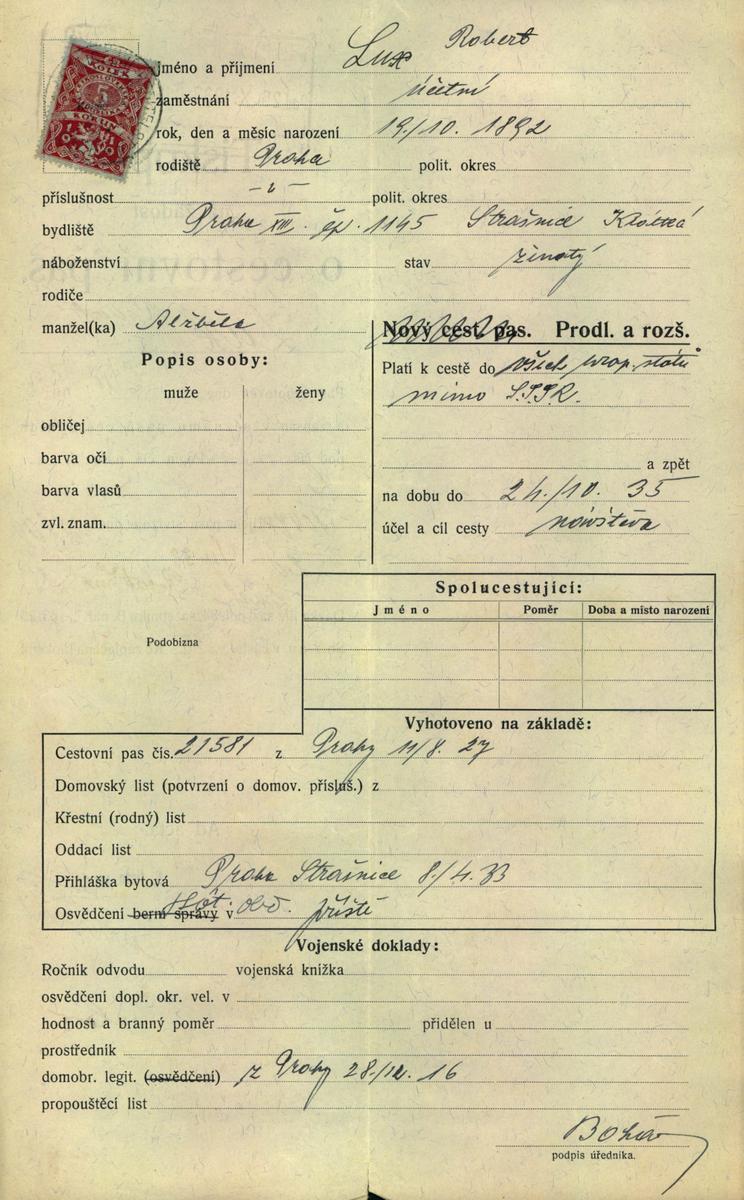 KOLEK
5
KORUN
jméno a příjmení Lux Robert
zaměstnání účetní
rok, den a měsíc narození 19./10. 1892
rodiště Praha polit. okres
příslušnost -"- polit. okres
bydliště Praha XIII. čp. 1145 Strašnice
náboženství stav ženatý
rodiče
manžel(ka) Alžběta
Nový cest. pas. Prodl. a rozš.
Popis osoby:
muže ženy
obličej
barva očí
barva vlasů
zvl. znam.
Platí k cestě do všech evrop. států
mimo S.S.S.R.
a zpět
na dobu do 24./10. 35
účel a cíl cesty návštěva
Podobizna
Spolucestující:
Jméno Poměr Doba a místo narození
Vyhotoveno na základě:
Cestovní pas čís. 21581 z Prahy 11/8. 27
Domovský list (potvrzení o domov. přísluš.) z
Křestní (rodný) list
Oddací list
Přihláška bytová Praha Strašnice 8./4. 33
Osvědčení berní správy v obd. příště
Vojenské doklady:
Ročník odvodu vojenská knížka
osvědčení dopl. okr. vel. v
hodnost a branný poměr přidělen u
prostředník
domobr. legit. (osvědčení) z Prahy 28./12. 16
propouštěcí list
podpis úředníka.